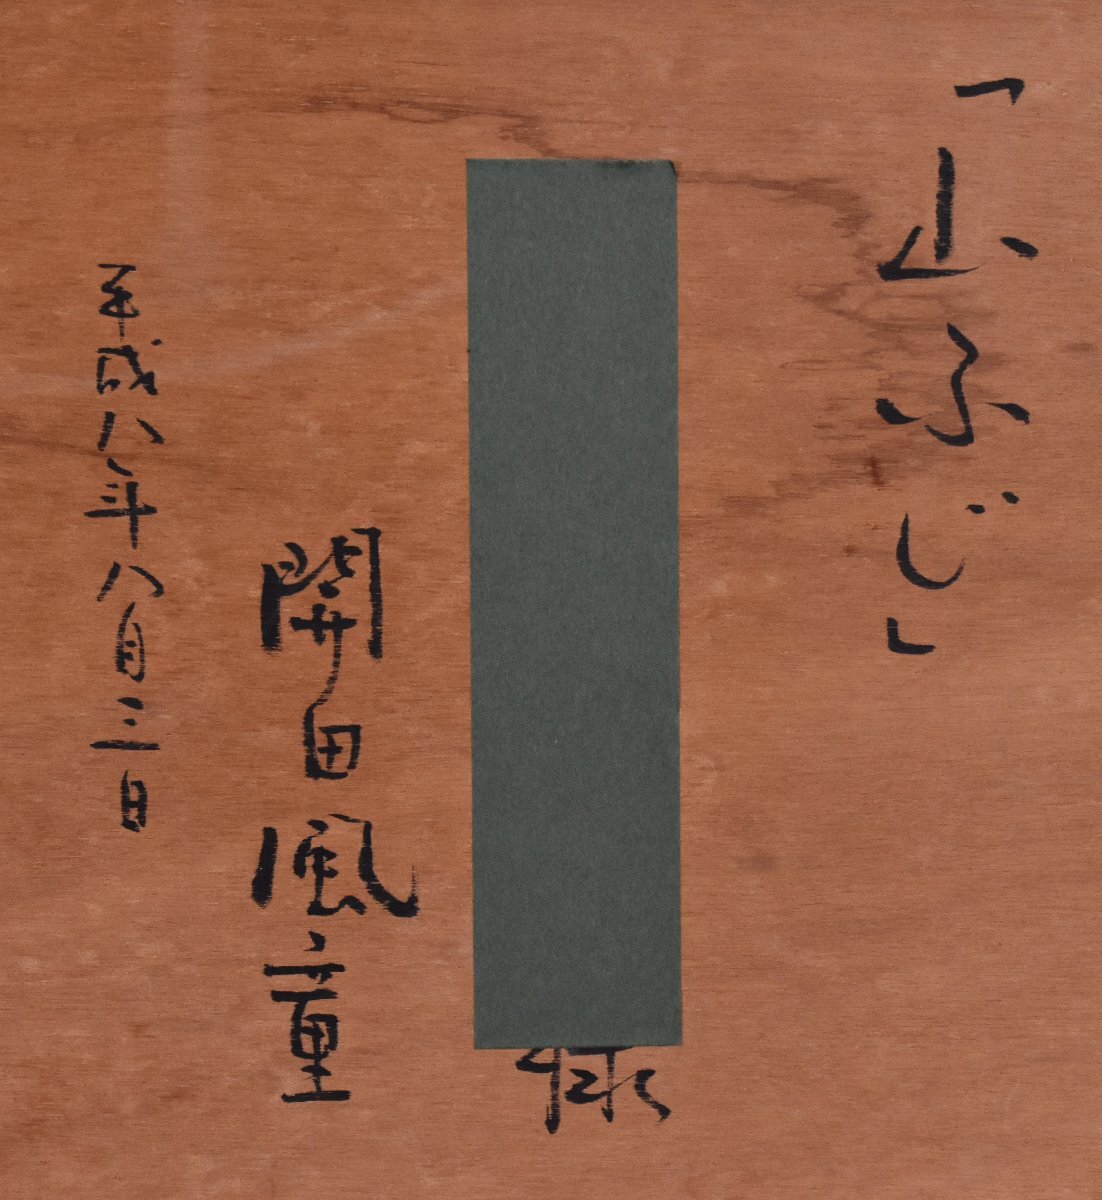 「山ふじ」
様
開田風童
平成八年八月三日